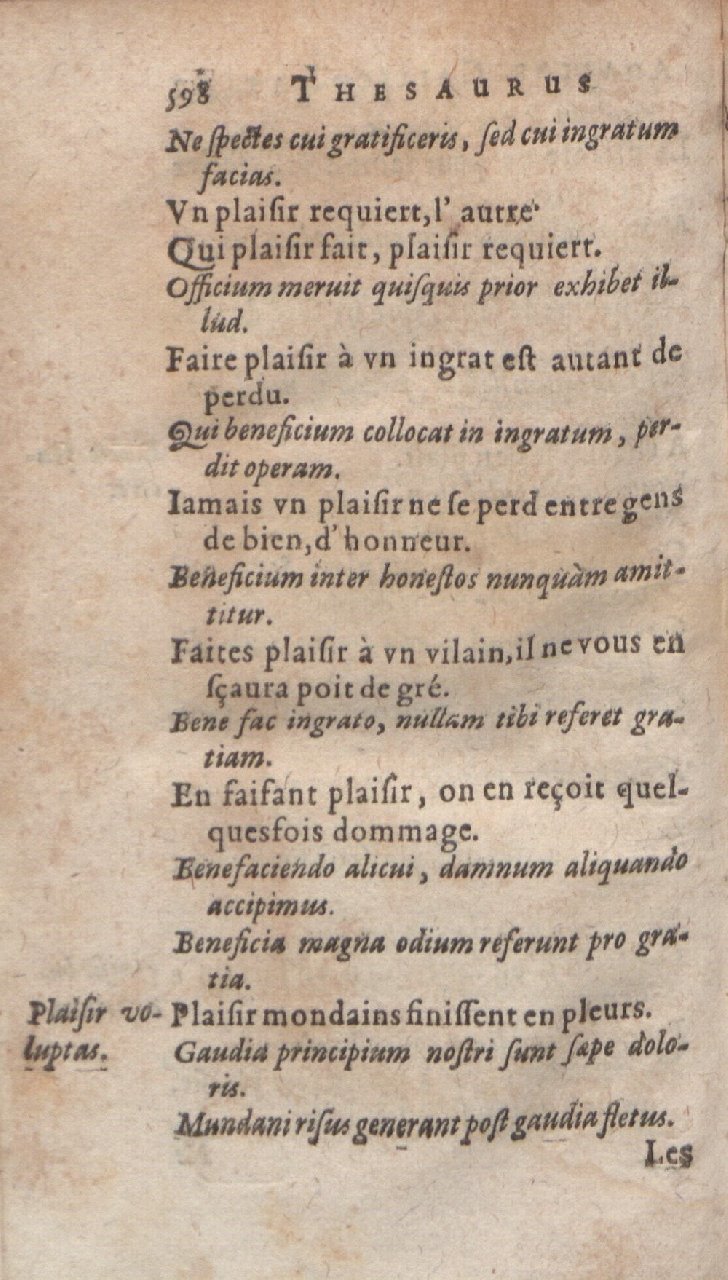 598 THESAURUS
Ne ſpectes cui gratificeris, ſed cui ingratum
facias.
Vn plaiſir requiert, l' autre
Qui plaiſir fait, plaiſir requiert.
Officium meruit quiſquis prior exhibet il-
lud.
Faire plaiſir à vn ingrat eſt autant de
perdu.
Qui beneficium collocat in ingratum, per-
dit operam.
Iamais vn plaiſir ne ſe perd entre gens
de bien, d' honneur.
Beneficium inter honeſtos nunquàm amit-
titur.
Faites plaiſir à vn vilain, il ne vous en
ſçaura poit de gré.
Bene fac ingrato, nullam tibi referet gra-
tiam.
En faiſant plaiſir, on en reçoit quel-
quesfois dommage.
Benefaciendo alicui, damnum aliquando
accipimus.
Beneficia magna odium referunt pro gra-
tia.
Plaiſir vo- Plaiſir mondains finiſſent en pleurs.
luptas. Gaudia principium noſtri ſunt ſæpe dolo-
ris.
Mundani riſus generant poſt gaudia fletus.
Les